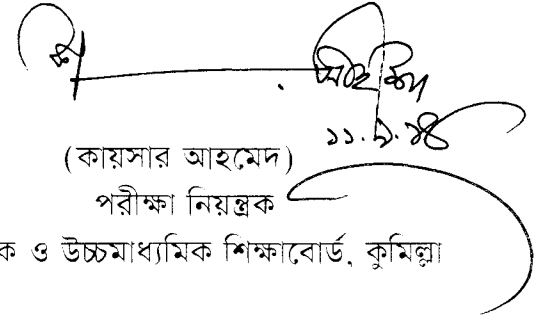 ১১.৯.১৪
(কায়সার আহমেদ)
পরীক্ষা নিয়ন্ত্রক
ক ও উচ্চমাধ্যমিক শিক্ষাবোর্ড, কুমিল্লা